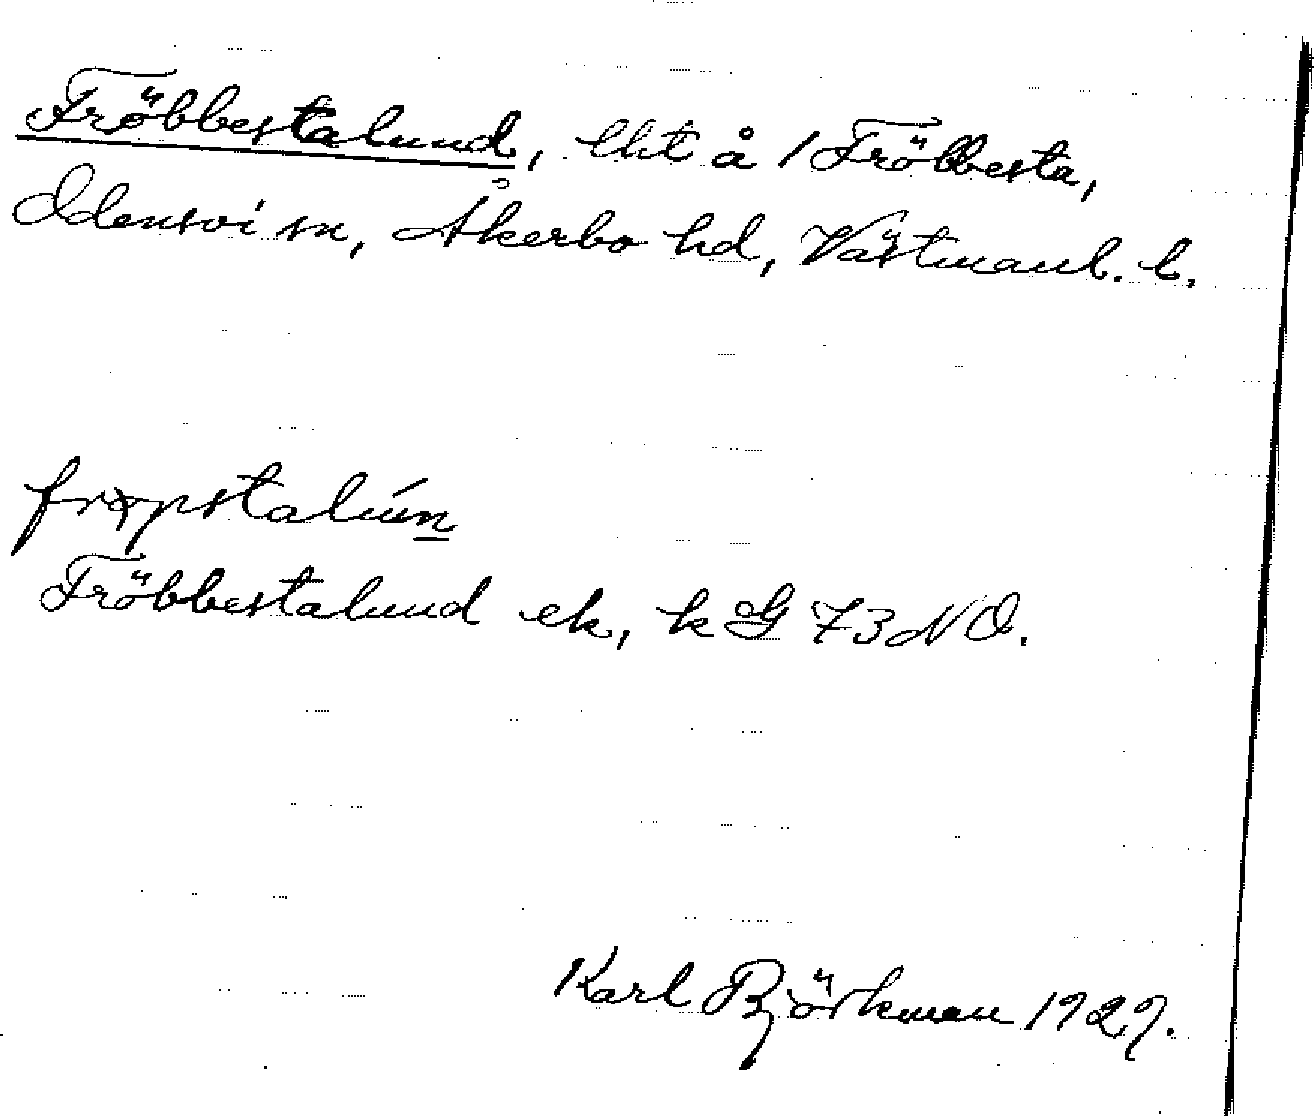 Fröbbestalund, lht å 1 Fröbbesta,
Odensvi sn, Åkerbo hd, Västmanl. l.
Fröbbestalund ek, k G 73 NO.
Karl Björkman 1929.